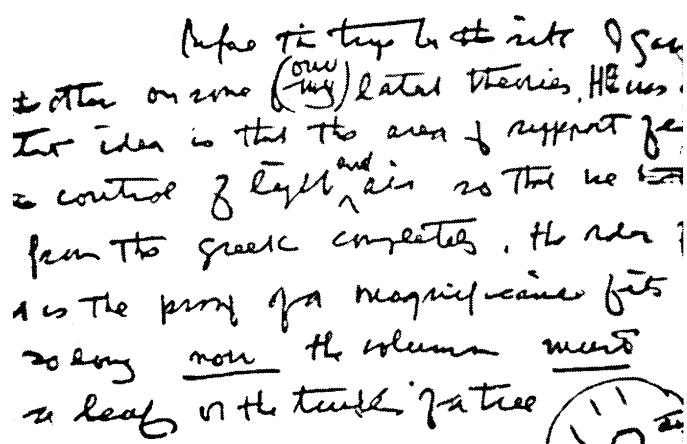 Before the trip to the site I gav
other on some (our my) latest theories. He was
that idea is that the area of support
control of light and air so that we
from the Greek completely. the order
is the proof of a magnificance fits
so long now the column must
a leaf on the trunk of a tree